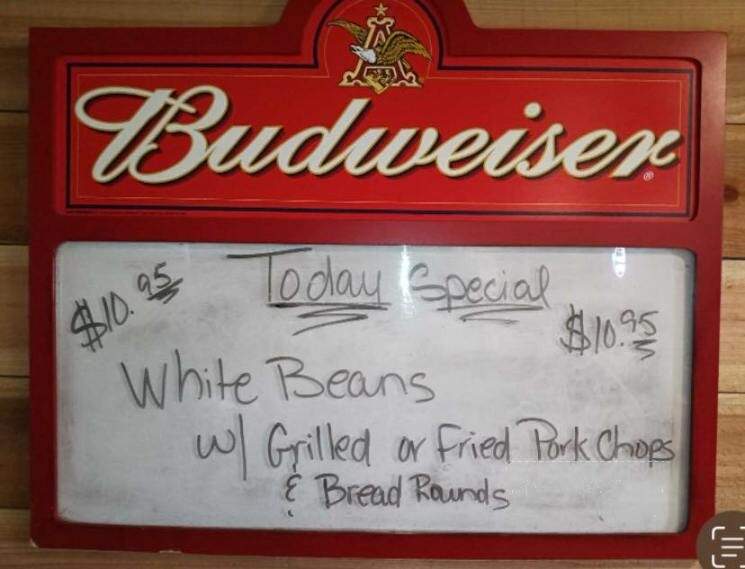 Budweiser®
Today Special
$10.95 $10.95
White Beans
w/ Grilled or Fried Pork Chops
& Bread Rounds